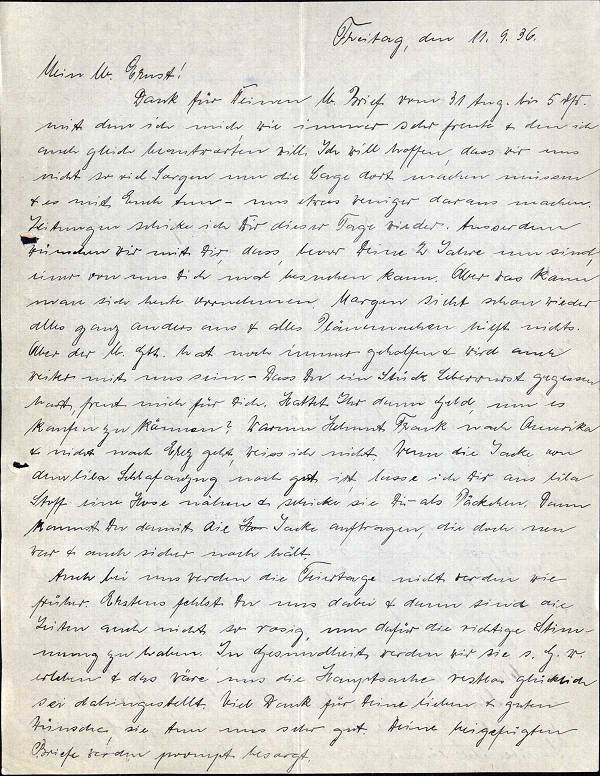 Freitag, den 11. 9. 36.
Mein lb. Ernst!
Dank für Deinen lb. Brief vom 31 Aug. bis 5 Spt.
mit dem ich mich, wie immer sehr freute & den ich
auch gleich beantworten will. Ich will hoffen, dass wir uns
nicht so viel Sorgen um die Lage dort machen müssen
& es mit Euch tun - uns etwas weniger daraus machen.
Zeitungen schicke ich Dir dieser Tage wieder. Ausserdem
wünschen wir mit Dir, dass, bevor Deine 2 Jahre um sind,
einer von uns Dich mal besuchen kann. Aber was kann
man sich heute vornehmen, Morgen sieht schon wieder
alles ganz anders aus & alles Plänemachen hilft nichts.
Aber der lb. Gtt. hat noch immer geholfen & wird auch
weiter mit uns sein. - Dass Du ein Stück Leberwurst gegessen
hast, freut mich für Dich. Hattet Ihr denn Geld, um es
kaufen zu können? Warum Helmut Frank nach Amerika
& nicht nach Erez geht, weiss ich nicht. Wenn die Jacke von
dem lila Schlafanzug noch gut ist lasse ich Dir aus lila
Stoff eine Hose nähen & schicke sie Dir als Päckchen. Dann
kannst Du damit die Jacke auftragen, die doch neu
war & auch sicher noch hält.
Auch bei uns werden die Feiertage nicht werden wie
früher. Erstens fehlst Du uns dabei & dann sind die
Zeiten auch nicht so rosig, um dafür die richtige Stim-
mung zu haben. In Gesundheit werden wir sie s. G. w.
erleben & das wäre uns die Hauptsache restlos glücklich
sei dahingestellt. Viel Dank für Deine lieben & guten
Wünsche, sie tun uns sehr gut. Deine beigefügten
Briefe werden prompt besorgt.